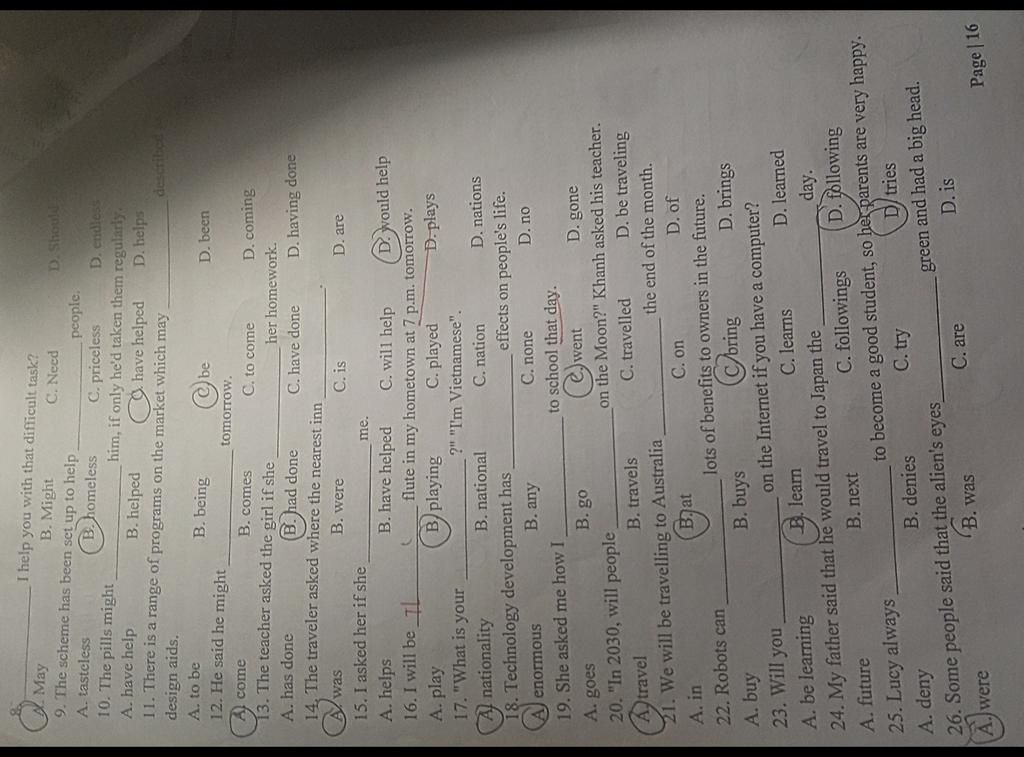 8. ________ I help you with that difficult task?
A. May B. Might C. Need D. Should
9. The scheme has been set up to help ________ people.
A. tasteless B. homeless C. priceless D. endless
10. The pills might ________ him, if only he'd taken them regularly.
A. have help B. helped C. have helped D. helps
11. There is a range of programs on the market which may ________ described
design aids.
A. to be B. being C. be D. been
12. He said he might ________ tomorrow.
A. come B. comes C. to come D. coming
13. The teacher asked the girl if she ________ her homework.
A. has done B. had done C. have done D. having done
14. The traveler asked where the nearest inn ________.
A. was B. were C. is D. are
15. I asked her if she ________ me.
A. helps B. have helped C. will help D. would help
16. I will be ________ flute in my hometown at 7 p.m. tomorrow.
A. play B. playing C. played D. plays
17. "What is your ________?" "I'm Vietnamese".
A. nationality B. national C. nation D. nations
18. Technology development has ________ effects on people's life.
A. enormous B. any C. none D. no
19. She asked me how I ________ to school that day.
A. goes B. go C. went D. gone
20. "In 2030, will people ________ on the Moon?" Khanh asked his teacher.
A. travel B. travels C. travelled D. be traveling
21. We will be travelling to Australia ________ the end of the month.
A. in B. at C. on D. of
22. Robots can ________ lots of benefits to owners in the future.
A. buy B. buys C. bring D. brings
23. Will you ________ on the Internet if you have a computer?
A. be learning B. learn C. learns D. learned
24. My father said that he would travel to Japan the ________ day.
A. future B. next C. followings D. following
25. Lucy always ________ to become a good student, so her parents are very happy.
A. deny B. denies C. try D. tries
26. Some people said that the alien's eyes ________ green and had a big head.
A. were B. was C. are D. is
Page | 16